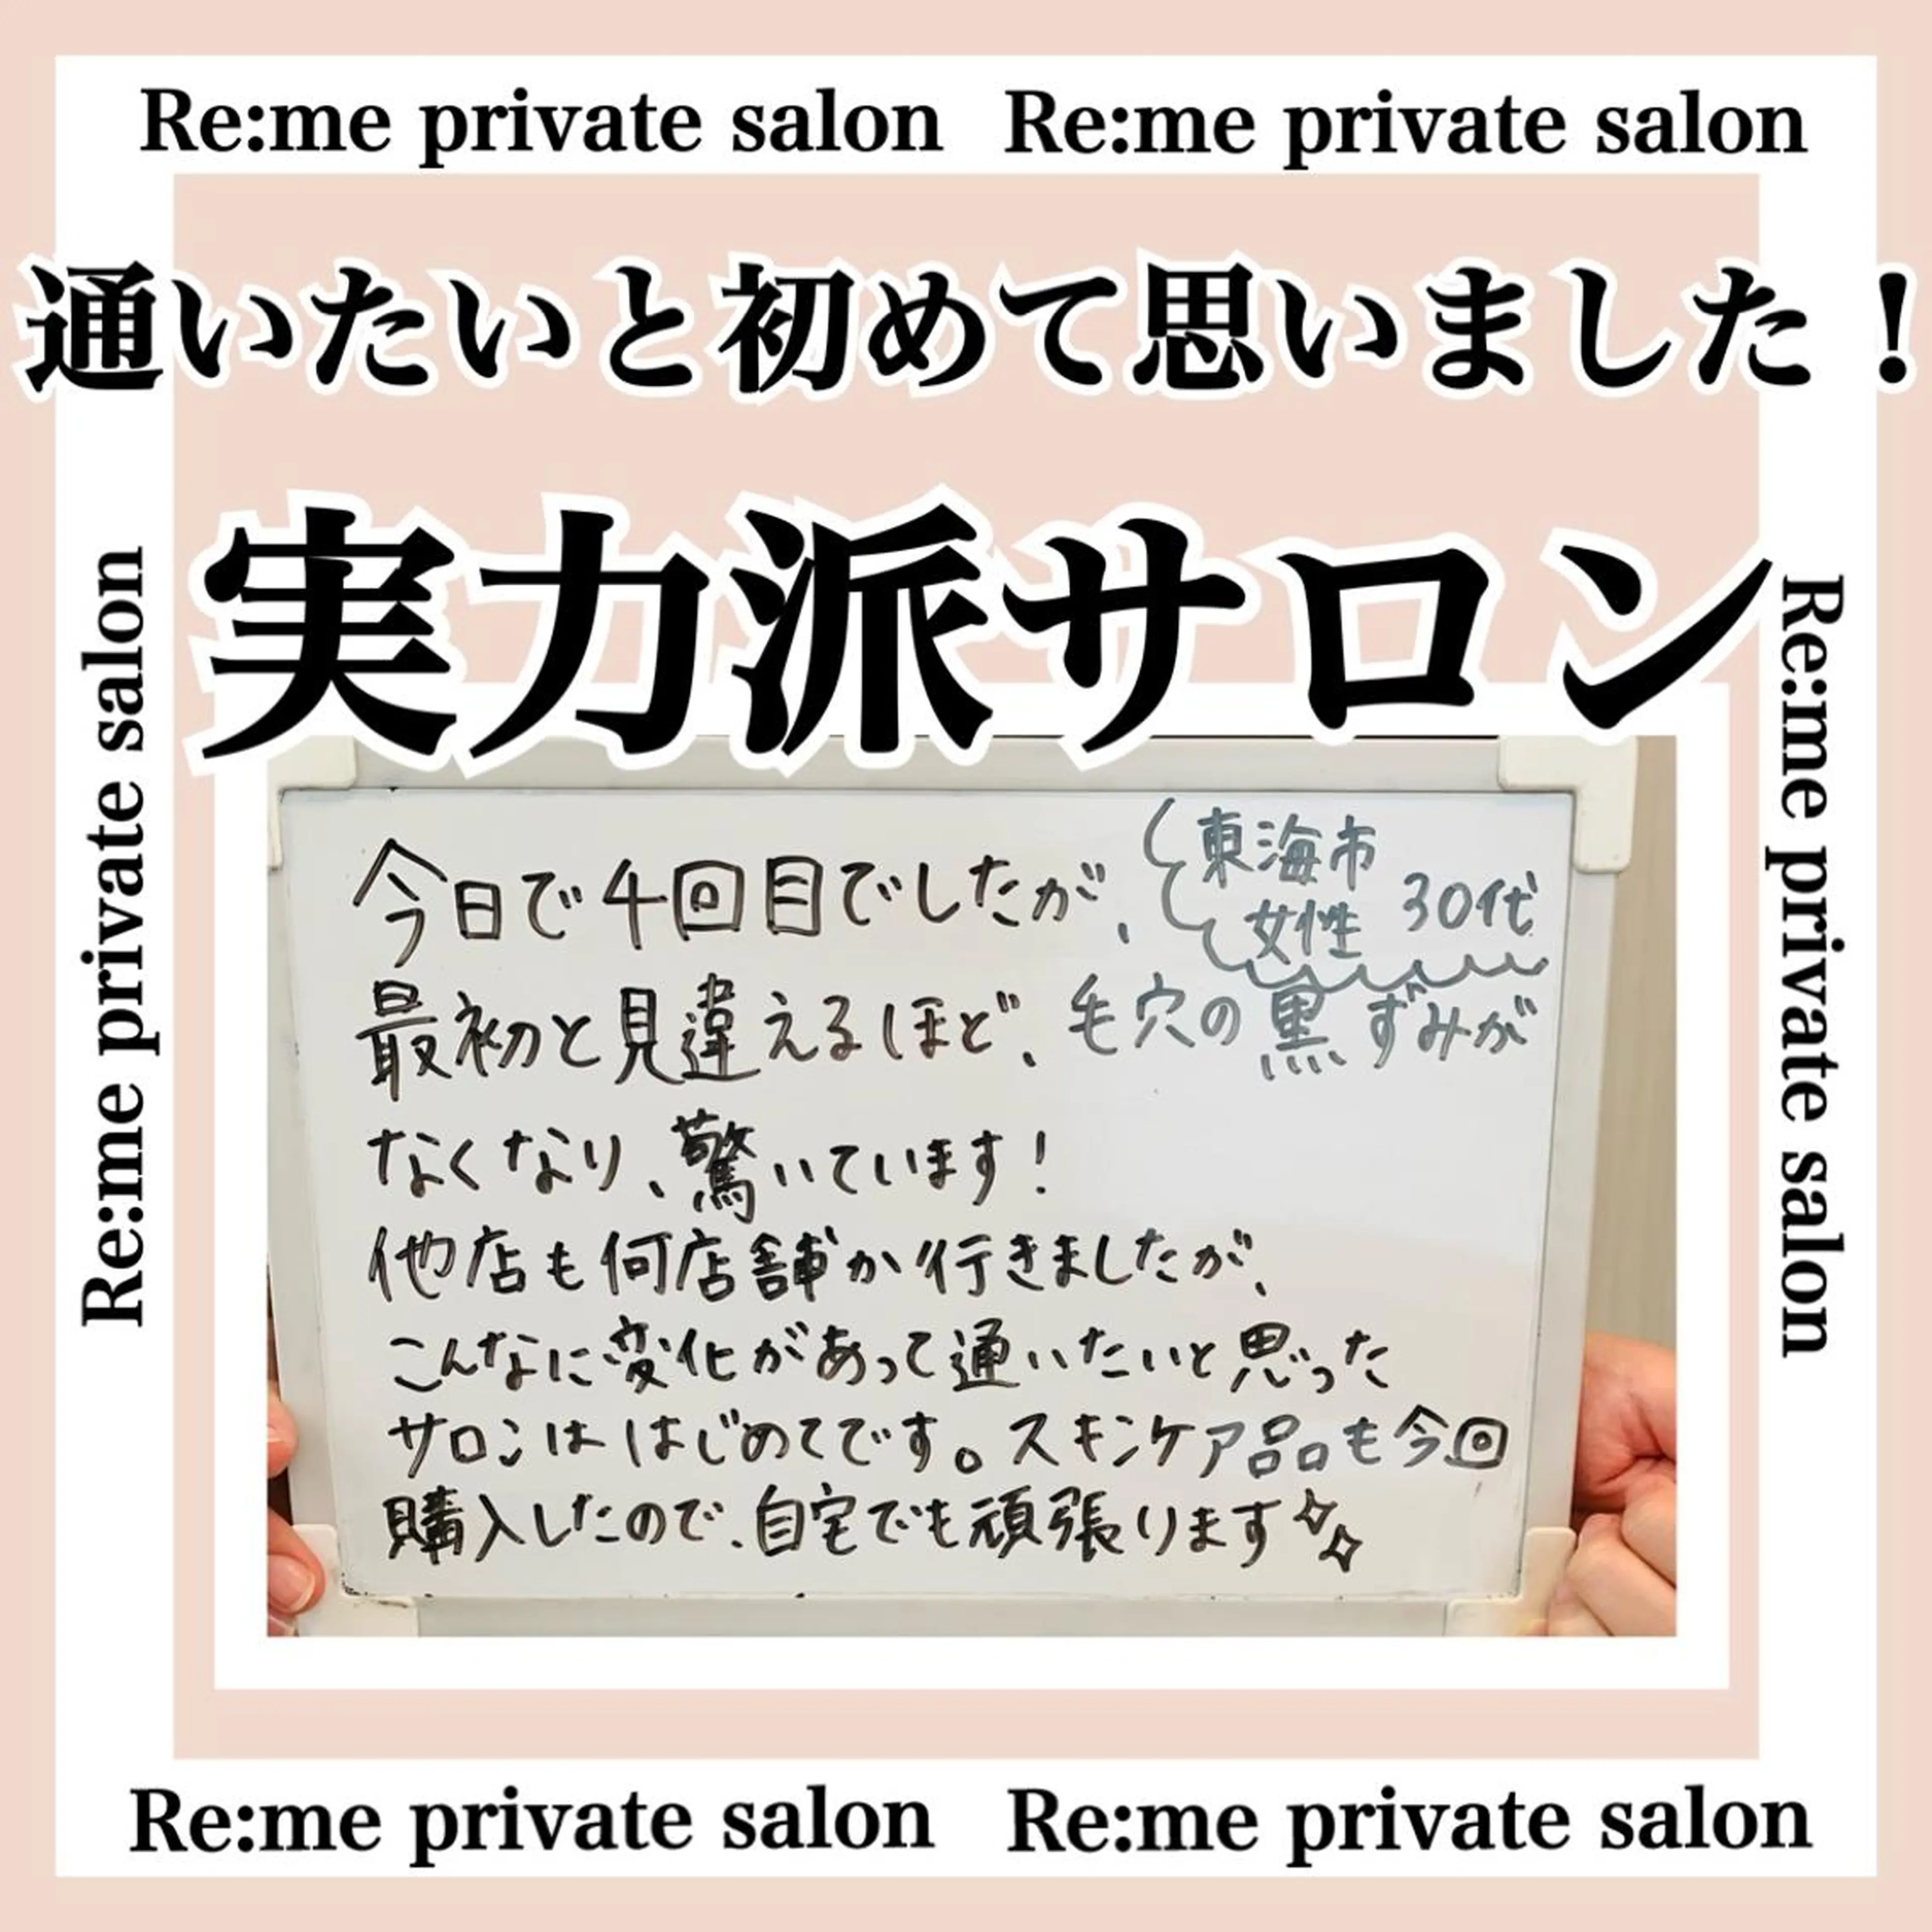 Re:me private salon Re:me private salon
通いたいと初めて思いました！
実力派サロン
Re:me private salon
Re:me private salon
東海市
女性 30代
今日で4回目でしたが、
最初と見違えるほど、毛穴の黒ずみが
なくなり、驚いています！
他店も何店舗か行きましたが、
こんなに変化があって通いたいと思った
サロンははじめてです。スキンケア品も今回
購入したので、自宅でも頑張ります
Re:me private salon Re:me private salon